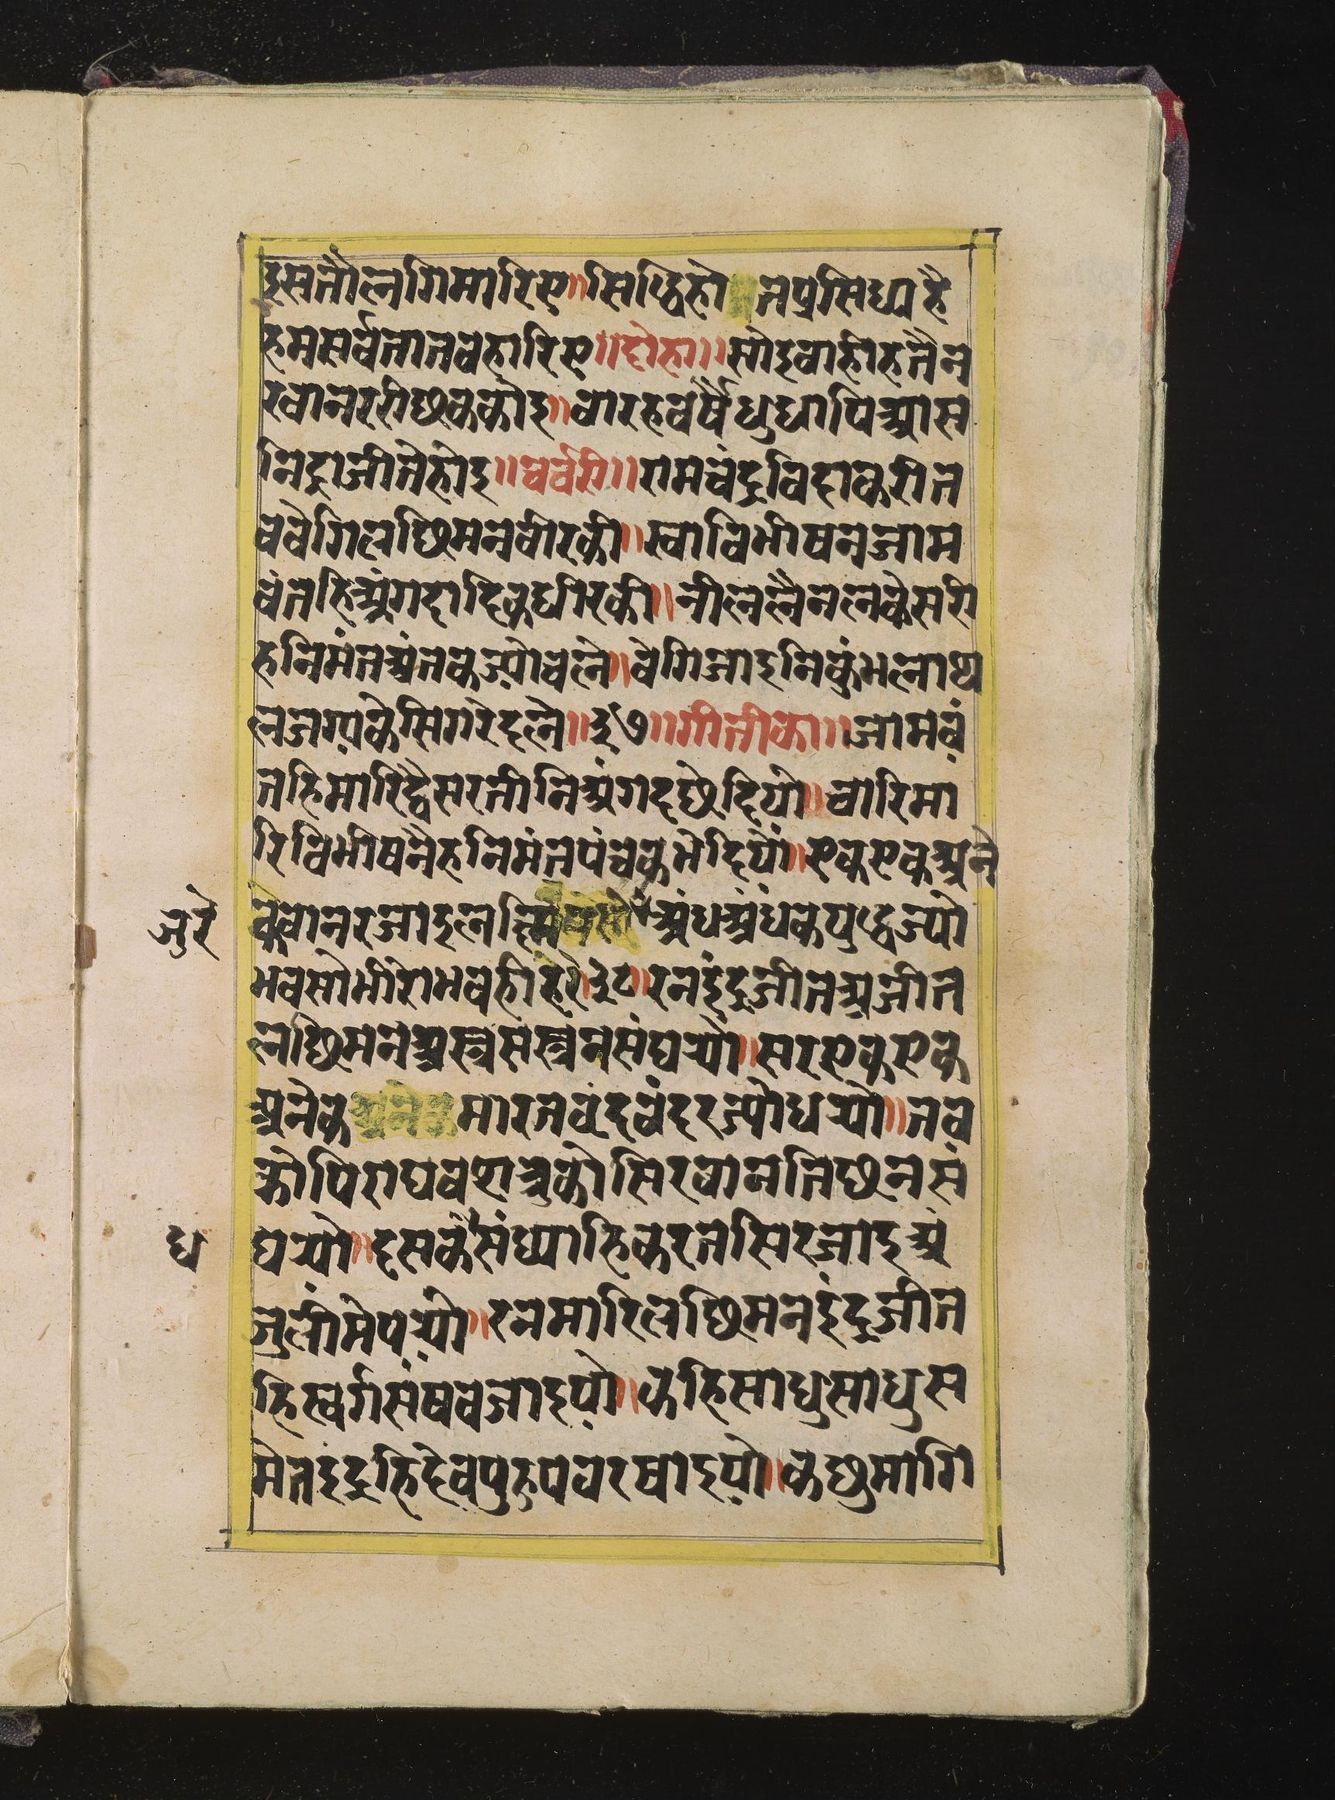 इसतौलगिमारिए॥सिद्धिहो तप्रसिध्यहै
हमसर्वतातवहारिए॥दोहा॥सोइवाहीहतैन
रवानररीछककोइ॥वारहवर्षैधुधापिआस
निद्राजीतैहोइ॥चर्वरी॥रामचंद्रविदाकरीत
ववेगिलछिमनवीरकी॥स्वाविभीषनजाम
वंतहिअंगदादिकधीरकी॥नीललैनलकेसरी
हनिमंतअंतकज्योचले॥वेगिजाइनिकुंभलाथ
लजग्यकेसिगरेदले॥३७॥गीतीका॥जामवं
तहिमारिद्वैसरतीनिअंगदछेदियो॥चारिमा
रिविभीषनैहनिमंतपंचकभेदियौ॥एकएकअने
जुरे
केवानरजाइलछिमनसोअंधअंधकयुद्धज्यो
भवसोभीरोभवहीहरे॥३८॥रनइंद्रजीतअजीत
लछिमनअस्त्रसस्त्रनसंघर्यौ॥सरएकएक
अनेकमारतवंदवंदरज्योधर्यौ॥तव
कोपिराघवशत्रुकोसिरवानतिछनसं
ध
घर्यो॥दसकंसंध्याहिकरतसिरजाइअं
जुलीमेपर्यो॥रनमारिलछिमनइंद्रजीत
हिस्वर्गसंषवजाइयो॥कहिसाधुसाधुस
मेतइंद्रहिदेवपुहुपवरषाइयो॥कछुमागि